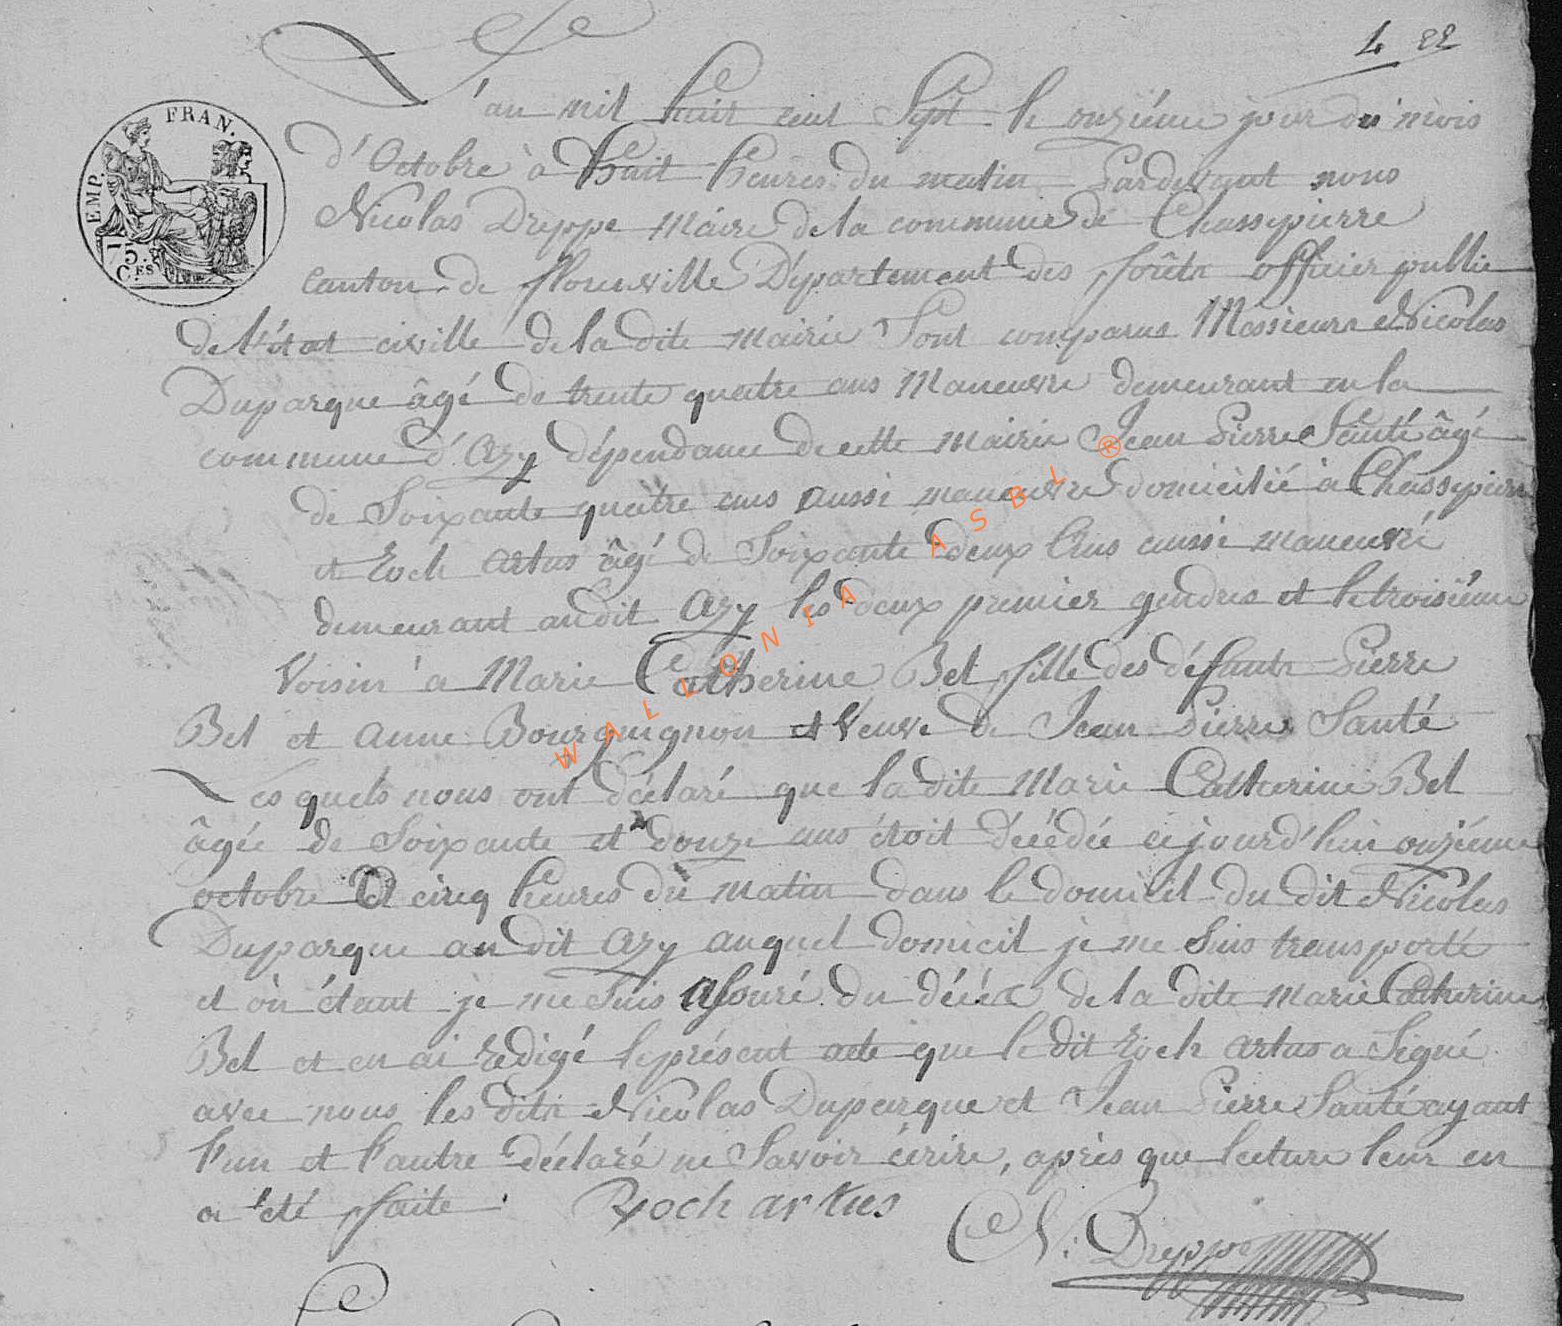 4 22
L'an mil huit cent Sept le onziéme jour du mois
EMP. FRAN.
75.
C.ES
d'Octobre à huit heures du matin Pardevant nous
Nicolas Dreppe Maire de la commune de Chassepierre
canton de florenville Département des forêts officier public
de l'état civille de la dite mairie Sont comparus Messieurs Nicolas
Duparque âgé de trente quatre ans Maneuvre demeurant en la
commune d'Azy dépendance de cette mairie Jean Pierre Santé âgé
de Soixante quatre ans aussi maneuvre domicilié à Chassepierre
et Roch artus âgé de Soixante deux Ans aussi maneuvre
demeurant audit Azy les deux premier gendres et le troisiéme
Voisin a Marie Catherine Bel fille des défunts Pierre
Bel et Anne Bourguignon et Veuve de Jean Pierre Santé
Les quels nous ont déclaré que la dite Marie Catherine Bel
âgée de Soixante et douze ans étoit décédée cejourd'hui onziéme
octobre A cinq heures du matin dans le domicil du dit Nicolas
Duparque au dit Azy auquel domicil je me Suis transporté
et òu étant je me Suis Assuré du décéc de la dite Marie Catherine
Bel et en ai redigé le présent acte que le dit Roch Artus a Signé
avec nous les dits Nicolas Duparque et Jean Pierre Santé ayant
l'un et l'autre déclaré ne Savoir écrire, après que lecture leur en
a été faite. Roch artus
N: Dreppe
WALLONIA ASBL ®